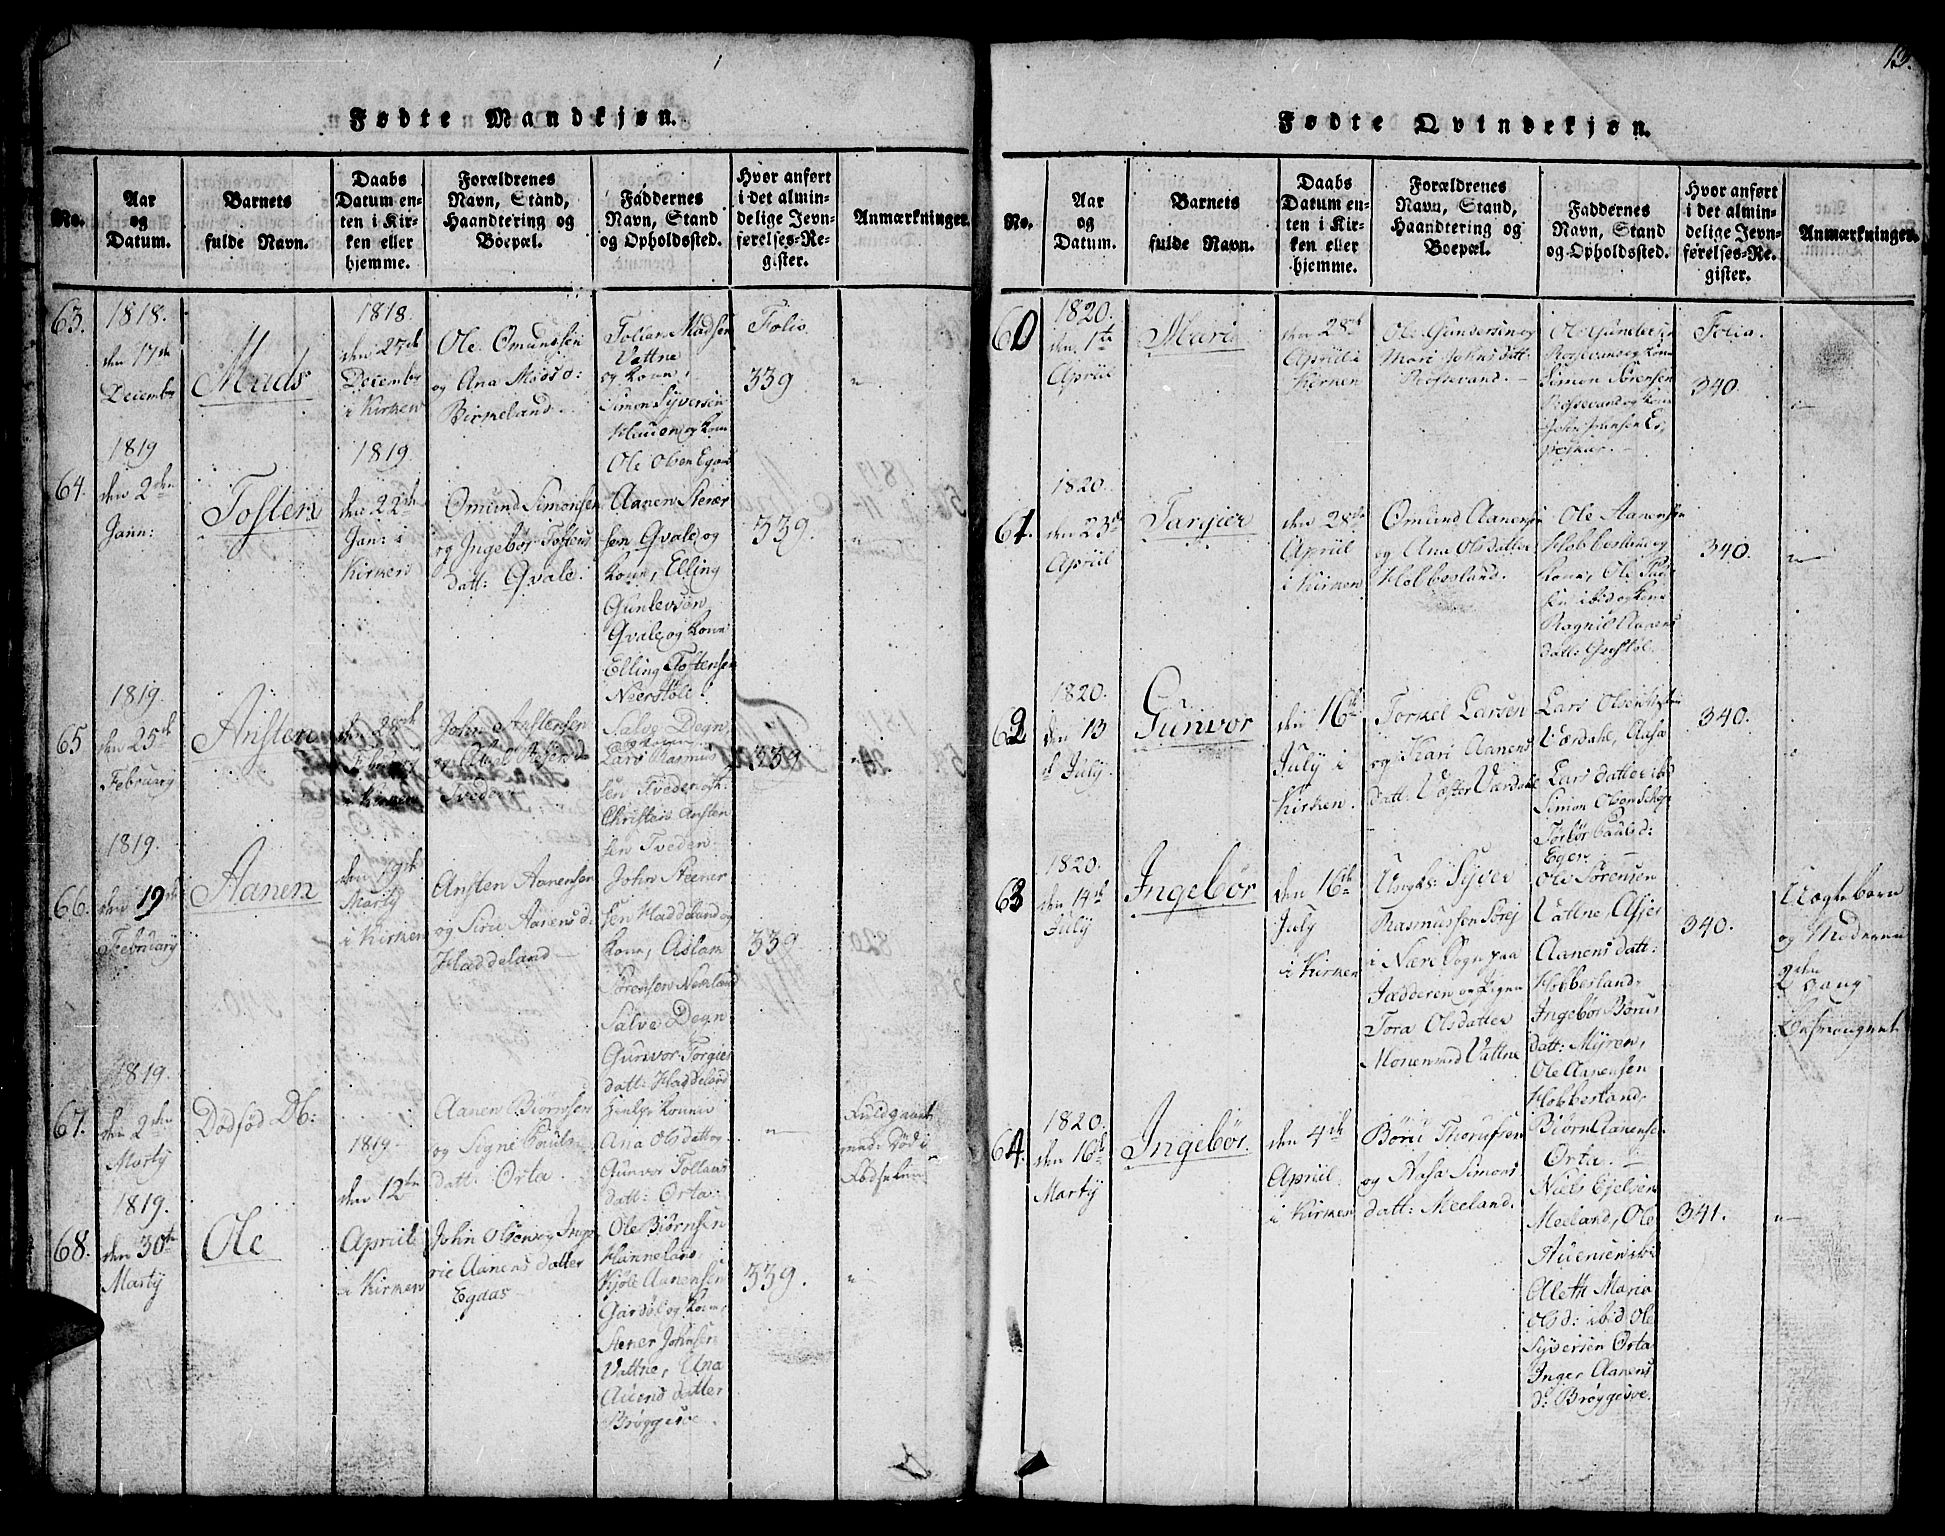 13.
Fødte Mandkjøn.
No.
Aar
og
Datum.
Barnets
fulde Navn.
Daabs
Datum en-
ten i Kir-
ken eller
hjemme.
Forældrenes
Navn, Stand,
Haandtering og
Boepæl.
Faddernes
Navn, Stand
og Opholdssted.
Hvor anført
i det almin-
delige Jevn-
førelses-Re-
gister.
Anmærkninger.
63.
1818.
den 17de
Decembr
Mads
1818.
den 27de
Decembr
i Kirken
Ole Omundsen
og Ana Mads d:
Birkeland.
Tollan Madsen
Vattne
og Kone,
Simon Syversen
Hauen og Kone
Ole Olsen Egaas
Folio
339
"
64.
1819
den 2den
Jann:
Tosten
1819
den 22de
Jan: i
Kirken
Omund Simonsen
og Ingebor Tostens
datt: Qvale.
Aanen Stener
sen Qvale og
Kone, Elling
Gunlevsen
Qvale og Kone
Elling Tostensen
Neerstøle.
339.
"
65
1819
den 25de
February
Ansten
28de
February
i Kirken
John Anstensen
Tveden
Salve Degn
Lars Rasmus
sen Tveden og K:
Christen Ansten
sen Tveden.
339
"
66.
1819.
den 19de
February
Aanen
den 19de
Marty
i Kirken
Ansten Aanensen
og Siru Aanens d:
Haddeland
John Steener
sen Haddeland og
Kone, Aslam
Sørensen Neeland
Salve Degn
Gunvor Torgies
datt: Haddeland
339
67.
1819.
den 2den
Marty
Dødfød Db:
Aanen Biørnsen
og Signe Pauls
datt: Orta
Hielpe Konner
Ana Olsdatt og
Gunvor Tollans
datt: Orta.
"
Fuldgaaet
men Død i
Fødselen
68.
1819.
den 30te
Marty
Ole
1819
den 12te
Apriil
i Kirken
John Olsen og Inge
rie Aanens datter
Egaas
Ole Biørnsen
Hanneland
Kjøle Aanensen
Gardøl og Kone,
Stener Johnsen
Vattne, Ana
Auens datter
Brøggesve.
339.
"
Fødte Qvindekjøn.
No.
Aar
og
Datum.
Barnets
fulde Navn.
Daabs
Datum en-
ten i Kir-
ken eller
hjemme.
Forældrenes
Navn, Stand,
Haandtering og
Boepæl.
Faddernes
Navn, Stand
og Opholdssted.
Hvor anført
i det almin-
delige Jevn-
førelses-Re-
gister.
Anmærkninger.
60
1820.
den 1te
Apriil
Mari
den 28de
Apriil i
Kirken
Ole Gundersen og
Mari Johnsdatt:
Rossevand.
Ole Gundersen
Rossevand og Kone
Simon Sørensen
Rossevand og Kone
Folio.
340.
"
61.
1820.
den 23de
Apriil
Targier
den 28de
Apriil
i Kirken
Omund Aanensen
og Ana Olsdatter
Hobbesland.
Ole Aanensen
Hobbesland og
Kone, Ole
sen ibid og Kone
Rognil Aanens
datt:
340.
"
62
1820.
den 13
July
Gunvor
den 16de
July i
Kirken.
Torkel Larsen
og Kari Aanens
datt: Væster Værdahl
Lars Olsen
Værdahl, Aasa
Lars datter ibid
Simon Olsen
Torbor Paulsd:
Eger.
340.
"
63
1820.
den 14de
July
Ingebør
den 16de
July
i Kirken
Ungk: Syver
Rasmussen Sørej
i Næri Sogn paa
Jædderen og Pigen
Tora Olsdatter
Monen ved Vattne
Ole Sørensen
Vattne, Asjer
Aanens datt:
Hobbesland,
Ingebør Børus
datt: Myren,
Ole Aanensen
Hobbesland.
340.
Uægtebarn
og Moderens
2den
gang
Besvangret
64.
1820.
den 16de
Marty
Ingebør.
den 4de
Apriil
i Kirken
Børu Thorussen
og Aasa Simons
datt: Meeland.
Biørn Aanensen
Orta.
Niels Ejelsen
Meeland, Ole
Auensen ibid
Aleth Maria
Olsd: ibid Ole
Syversen Orta
Inger Aanens
d: Brøggesve.
341.
"